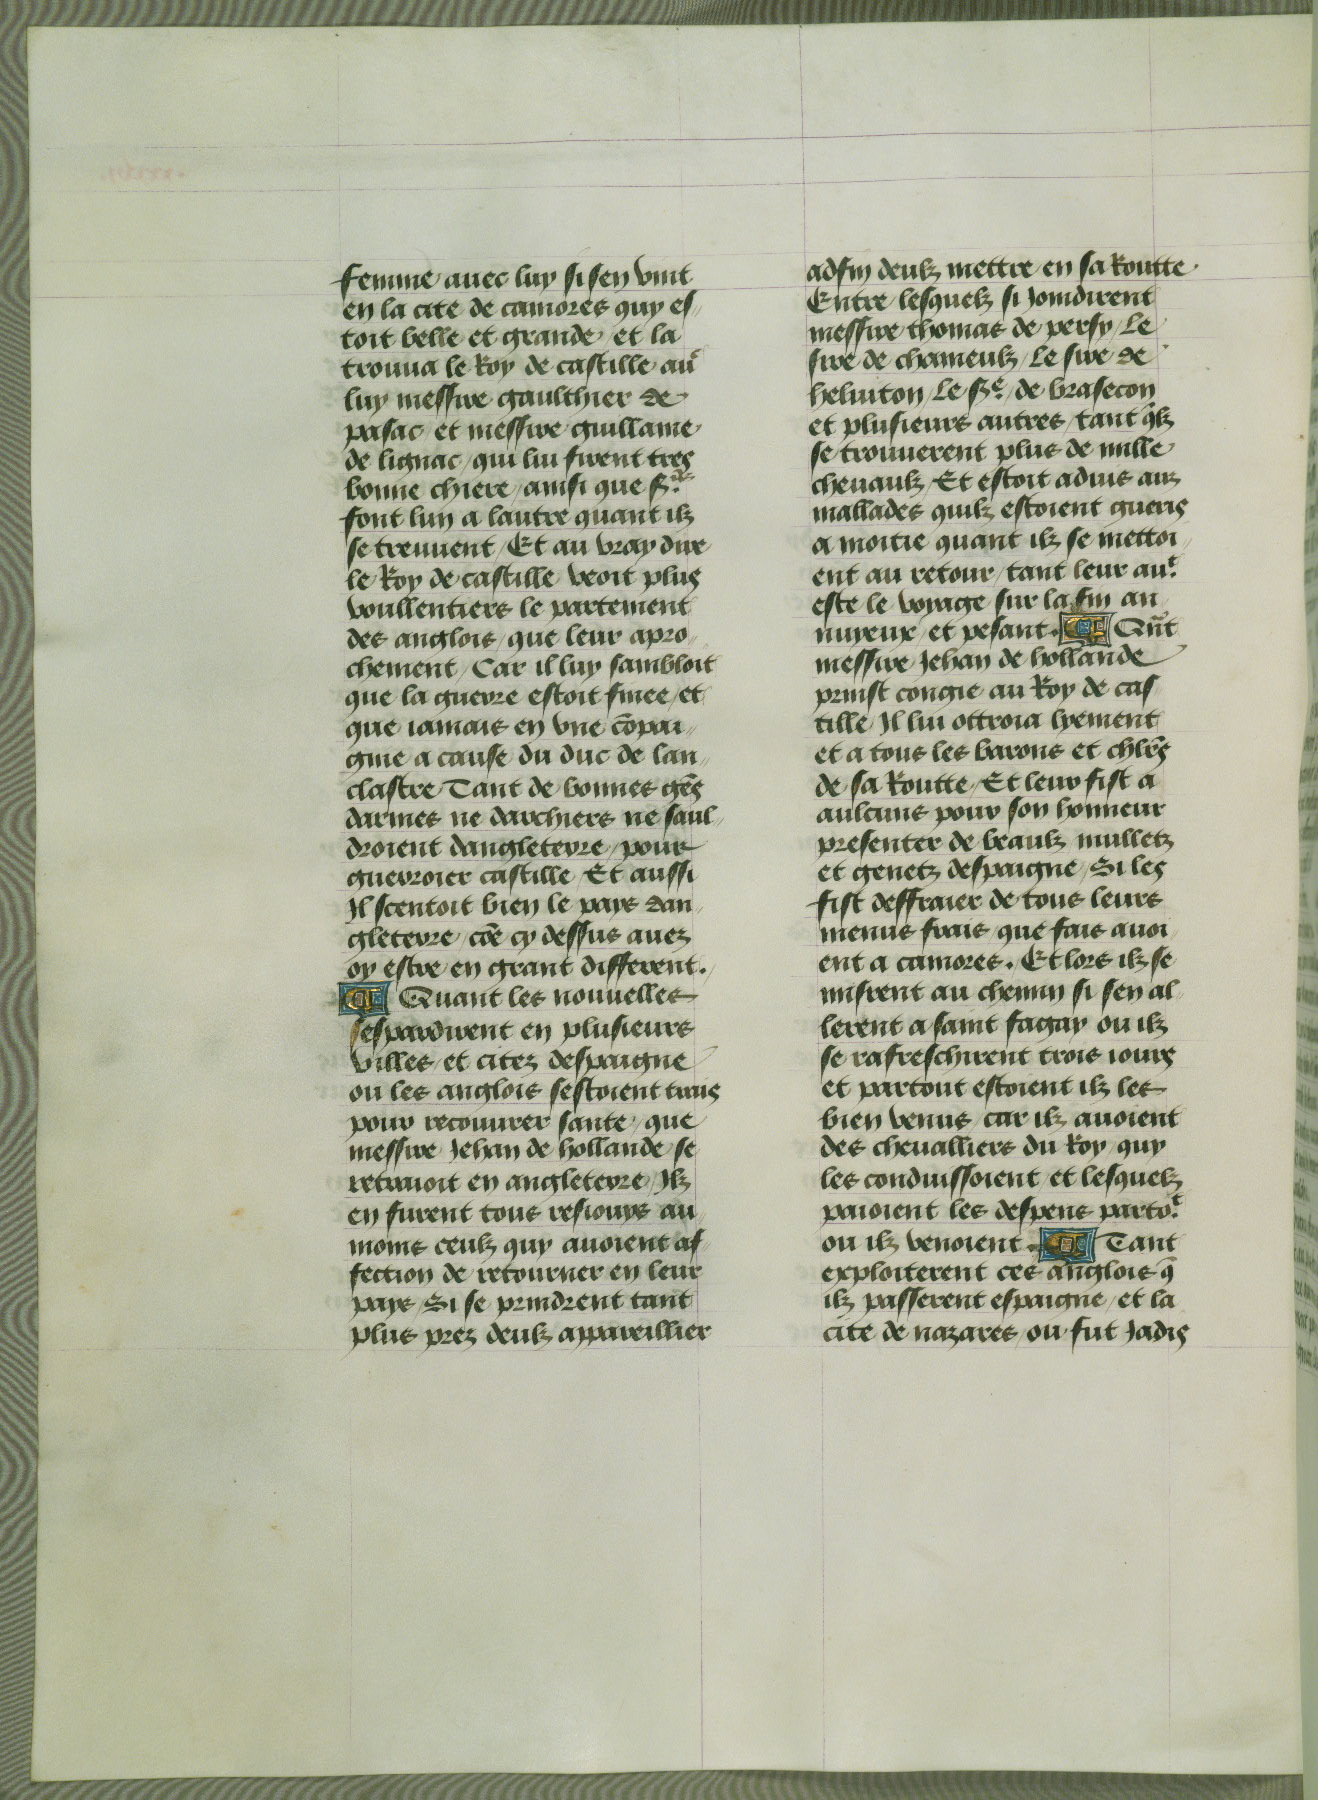 femme auec luy si sen vint
en la cite de camores quy es/
toit belle et grande / et la
trouua le Roy de castille au͛
luy messire gaulthier de
pasac / et messire guillame
de lignac / qui lui firent tres
bonne chiere / ainsi que Sr̃s
font lun a lautre quant ilz
se treuuent / Et au vray dire
le Roy de castille veoit plus
voullentiers le partement
des anglois / que leur apro /
chement / Car il luy sambloit
que la guerre estoit finee / et
que iamais en vne cõpai /
gnie a cause du duc de lan /
clastre Tant de bonnes gẽs
darmes ne darchiers ne saul /
droient dangleterre / pour
guerroier castille Et aussi
Il scentoit bien le pays dan /
gleterre / cõe cy dessus auez
oy estre en grant different.
Quant les nouuelles
sespardirent en plusieurs
villes / et citez despaigne
ou les anglois sestoient trais
pour recouurer sante / que
messire Jehan de hollande / se
retraioit en angleterre / Ilz
en furent tous resiouys au
moins ceulz quy auoient af /
fection de retourner en leur
pays / Si se prindrent tant
plus prez deulz appareillier
adfin deulz mettre en sa Routte
Entre lesquelz si Joindirent
messire thomas de persy / Le
sire de chameulz / Le sire de
heluiton / Le Sr̃ / de brasecon
et plusieurs autres / tant q̃lz
se trouuerent plus de mille
cheuaulz / Et estoit aduis aux
mallades quilz estoient gueris
a moitie quant ilz se mettoi /
ent au retour / tant leur auᵗ.
este le voyage sur la fin an /
nuyeux / et pesant. Qñt
messire Jehan de hollande
prinst congie au Roy de cas /
tille Il lui ottroia lyement
et a tous les barons et chl̃rs
de sa Routte / Et leur fist a
aulcuns pour son honneur
presenter de beaulz mulletz
et genetz despaigne / Si les
fist deffraier de tous leurs
menus frais / que fais auoi /
ent a camores. Et lors ilz se
misrent au chemin si sen al /
lerent a saint fagay ou ilz
se rafreschirent trois iours
et partout estoient ilz les
bien venus / car ilz auoient
des cheualliers du Roy / quy
les conduissoient / et lesquelz
paioient les despens partoᵗ.
ou ilz venoient. Tant
exploiterent ces anglois q̃
ilz passerent espaigne / et la
cite de nazares / ou fut Jadis